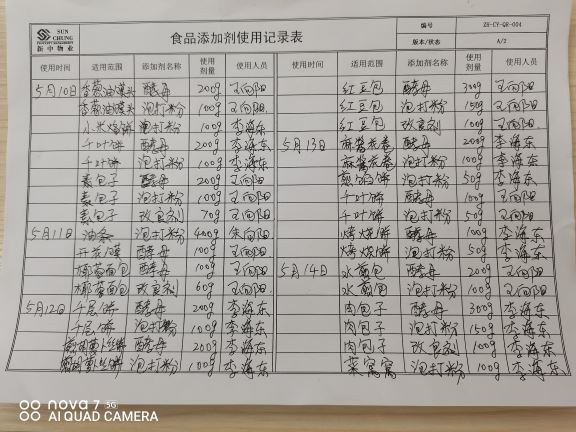 SUN CHUNG
新中物业
食品添加剂使用记录表
编号 ZH-CY-QR-004
版本/状态 A/2
使用时间 适用范围 添加剂名称 使用剂量 使用人员 使用时间 适用范围 添加剂名称 使用剂量 使用人员
5月10日 香葱油馍头 酵母 200g 王向阳 红豆包 酵母 300g 王向阳
香葱油馍头 泡打粉 100g 王向阳 红豆包 泡打粉 150g 王向阳
小米烙饼 泡打粉 100g 李海东 红豆包 改良剂 100g 王向阳
千叶饼 酵母 200g 李海东 5月13日 麻酱花卷 酵母 200g 李海东
千叶饼 泡打粉 100g 李海东 麻酱花卷 泡打粉 100g 李海东
素包子 酵母 200g 王向阳 煎馅饼 泡打粉 50g 李海东
素包子 泡打粉 100g 王向阳 千叶饼 酵母 100g 王向阳
素包子 改良剂 70g 王向阳 千叶饼 泡打粉 50g 王向阳
5月11日 油条 泡打粉 400g 朱向阳 烤烧饼 酵母 100g 李海东
开花馍 酵母 100g 王向阳 烤烧饼 泡打粉 50g 李海东
椰蓉面包 酵母 100g 王向阳 5月14日 水煎包 酵母 200g 王向阳
椰蓉面包 改良剂 60g 王向阳 水煎包 泡打粉 100g 王向阳
5月12日 千层饼 酵母 200g 李海东 肉包子 酵母 300g 李海东
千层饼 泡打粉 100g 李海东 肉包子 泡打粉 150g 李海东
丝饼 酵母 200g 李海东 肉包子 改良剂 100g 李海东
丝饼 泡打粉 100g 李海东 菜窝窝 泡打粉 100g 李海东
nova 7 5G
AI QUAD CAMERA